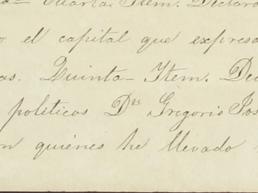 Cuarta. Item. Declaro
el capital que expreso
as. Quinta- Item. Dec
politicos Dres Gregorio Jos
n quiénes he llevado